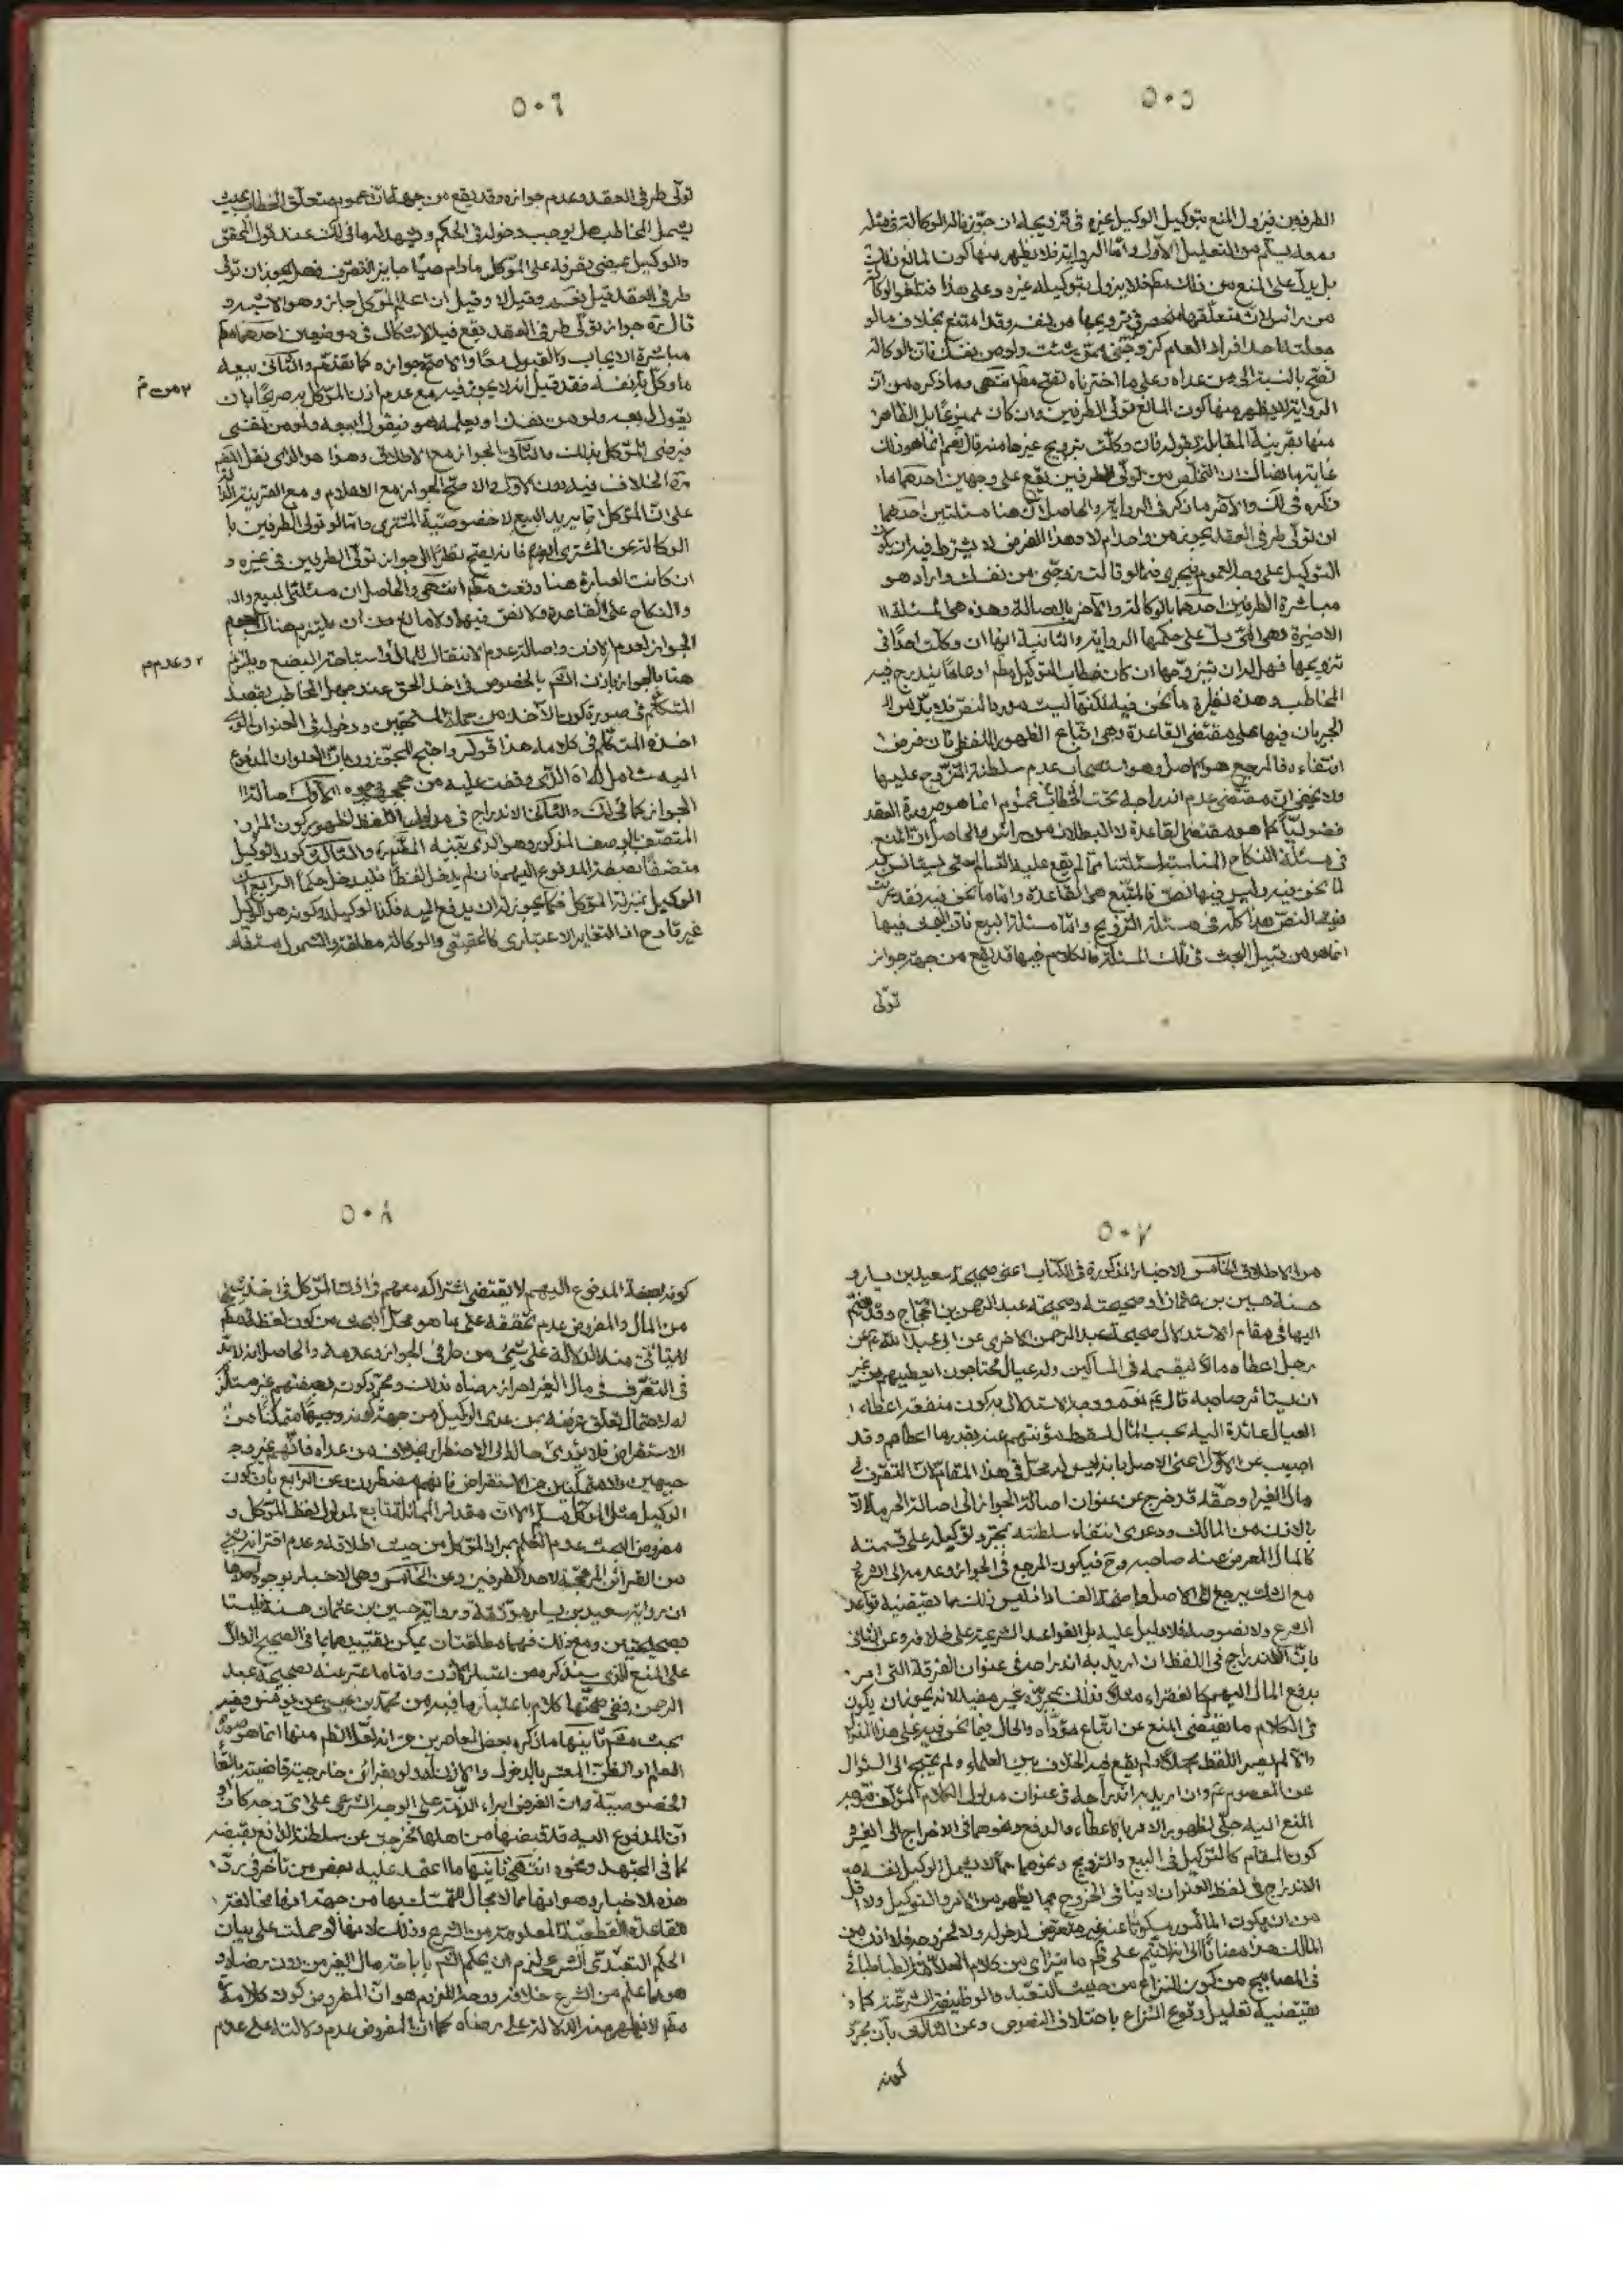 ٥٠٥
الطرفين فيزول المنع بتوكيل الوكيل غيره في تزويجها له ان جوزنا له الوكالة في مثله
بل يدل على المنع من ذلك مطلقا فلا يزول بتوكيله غيره وعلى هذا فتلغو الوكالة
الرواية لا يظهر منها كون المانع تولي الطرفين وان كان ممنوعا بل الظاهر
منها بقرينة المقابلة بقوله فان وكلت بتزويج غيرها منه قال نعم انما هو ذلك
ذكره في لك والاخر ما ذكر في الرواية والحاصل ان هنا مسئلتين احدهما
ان تولي طرفي العقد يجوز من واحد ام لا وهذا الفرض لا يشترط فيه ان يكون
التوكيل على وجه العموم فيجري فيما لو قالت زوجني من نفسك واراد هو
مباشرة الطرفين احدهما بالوكالة والاخر بالاصالة وهذه هي المسئلة ا
الاخيرة وهي التي دل على حكمها الرواية والثانية انها ان وكلت احدا في
تزويجها فهل له ان يتزوجها ان كان خطاب التوكيل مطلقا او عاما يندرج فيه
المخاطب وهذه نظيرة ما نحن فيه لكنها ليست موردا للنص فلا بد من ا
الجريان فيها على مقتضى القاعدة وهي اتباع الظهور اللفظي فان فرض
انتفاءه فالمرجع هو الاصل وهو استصحاب عدم سلطنة التزوج عليها
ولا يخفى ان مقتضى عدم اندراجه تحت الخطاب بعمومه انما هو صيرورة العقد
فضوليا كما هو مقتضى القاعدة لا البطلان من راس والحاصل ان المنع
لما نحن فيه وليس فيها نص فالمتبع هي القاعدة واما ما نحن فيه فقد عرفت
فيه النص هذا كله في مسئلة التزويج واما مسئلة البيع فان البحث فيها
انما هو من قبيل البحث في تلك المسئلة فالكلام فيها قد يقع من جهة جواز
تولي
٥٠٦
تولي طرفي العقد وعدم جوازه وقد يقع من جهة ان عموم متعلق الخطاب بحيث
يشمل المخاطب هل يوجب دخوله في الحكم ويشهد له ما في لك عند قول المحقق
والوكيل يمضي تصرفه على الموكل مادام حيا جايز التصرف فهل يجوز ان تولى
طرفي العقد قيل نعم وقيل لا وقيل ان اعلم الموكل جاز وهو الاشبه و
قال ره جواز تولي طرفي العقد يقع فيه الاشكال في موضعين احدهما
مباشرة الايجاب والقبول معا والاصح جوازه كما تقدم والثاني بيعه
ما وكل فيه نفسه فقد قيل انه لا يجوز فيه مع عدم اذن الموكل به صريحا بان
يقول له بعه ولو من نفسك او يعلمه هو فيقول ابيعه ولو من نفسي
فيرضى الموكل بذلك والثاني الجواز مع الاطلاق وهذا هو الذي نقل المصنف
ره الخلاف فيه دون الاول والاصح الجواز مع الاعلام و مع القرينة الدالة
على ان الموكل انما يريد البيع لا خصوصية المشتري واما لو تولى الطرفين با
الوكالة عن المشتري
ان كانت العبارة هنا وقعت مطلقة انتهى والحاصل ان مسئلتي البيع والـ
والنكاح على القاعدة ولا نص فيهما ولا مانع من ان يلتزم هناك بعدم
الجواز لعدم الاذن واصالة عدم الانتقال للمال واستباحة البضع ويلتزم
المتكلم في صورة كون الاخذ من جملة المستحقين ودخوله في العنوان الذي
اخذه المتكلم في كلامه هذا قوله واحتج المجوزون بان العنوان المدفوع
الجواز كما في لك والثاني الاندراج في مدلول اللفظ لظهور كون المأذون
متصفا بصفة المدفوع اليهم فان لم يدخل لفظا فليدخل حكما الرابع ان
الوكيل بمنزلة الموكل فكما يجوز له ان يدفع اليه فكذا الوكيل وكونه هو الوكيل
غير قادح اذ التغاير الاعتباري كالحقيقي والوكالة مطلقة والشمول مستفاد
٢ وعدم
٥٠٧
من الاطلاق الخامس الاخبار المذكورة في الكتاب اعني صحيحة سعيد بن يسار و
حسنة حسين بن عثمان او صحيحته وصحيحة عبد الرحمن بن الحجاج وقد
اليها في مقام الاستدلال صحيحة عبد الرحمن الاخرى عن ابي عبد الله ع عن
رجل اعطاه مالا ليقسمه في المساكين وله عيال محتاجون ايعطيهم من غير
ان يستأمر صاحبه قال ع نعم ووجه الاستدلال به كون منفعة اعطاء ا
العيال عائدة اليه بحسب المال لسقوط مؤنتهم عنه بقدر ما اعطاهم وقد
اجيب عن الاول اعني الاصل بانه ليس له محل في هذا المقام لان التصرف في
مال الغير او حقه قد خرج عن عنوان اصالة الجواز الى اصالة الحرمة الا
بالاذن من المالك ودعوى انتفاء سلطنته بمجرد توكيله على قسمته
كالمال المعرض عنه صاحبه وح فيكون المرجع في الجواز وعدمه الى الشرع
الشرع ولا نصوصه فلا دليل عليه بل القواعد الشرعية على خلافه وعن الثاني
بان الاندراج في اللفظ ان اريد به اندراجه في عنوان الفرقة التي امر
في الكلام ما يقتضي المنع عن اتباع مؤداه والحال فيما نحن فيه على هذا المنوال
والا لم يصر اللفظ مجملا ولم يقع فيه الخلاف بين العلماء ولم يحتج الى السؤال
عن المعصوم ع وان اريد به اندراجه في عنوان مدلول الكلام المؤلف فتوجه
المنع اليه جلي لظهور الامر بالاعطاء والدفع ونحوهما في الاخراج الى الغير و
كون المقام كالتوكيل في البيع والتزويج ونحوهما مما لا يشمل الوكيل نفسه
الاندراج في لفظ العنوان لا ينافي الخروج مما يظهر من الامر والتوكيل ولا اقل
من ان يكون المأمور مسكوتا عنه غير متعرض لدخوله ولا لخروجه فلا اذن من
المالك هذا مضافا الى انه لا يتم على نظم ما يترائ من كلام العلامة الطباطبائي
في المصابيح من كون النزاع من حيث التعبد والوظيفة الشرعية كما
يقتضيه تعليل وقوع النزاع باختلاف النصوص وعن الثالث بان مجرد
كونه
٥٠٨
كونه بصفة المدفوع اليهم لا يقتضي اشتراكه معهم في اذن الموكل في اخذ شيء
من المال والمفروض عدم تحققه على ما هو محل البحث من كون لفظه مطلقا
لا يتأتى منه الدلالة على شيء من طرفي الجواز وعدمه والحاصل انه لا بد
في التصرف في مال الغير احراز رضاه بذلك ومجرد كونه بصفتهم غير مستلزم
له لاحتمال تعلق غرضه بمن عدى الوكيل من جهة كونه وجيها متمكنا من
الاستقراض فلا يؤدي حاله الى الاضطرار بخلاف من عداه فانهم غير وجـ
جيهين ولا متمكنين من الاستقراض فانهم مضطرون وعن الرابع بان كون
الوكيل مثل الموكل مسلم الا ان مقدار المماثلة تابع لمدلول لفظ الموكل و
مفروض البحث عدم العلم بمراد الموكل من حيث اطلاقه وعدم اقترانه بشيء
من القرائن المرجحة لاحد الطرفين وعن الخامس وهي الاخبار بوجوه احدها
ان رواية سعيد بن يسار موثقة ورواية حسين بن عثمان حسنة فليستا
بصحيحتين ومع ذلك فهما مطلقتان يمكن تقييدهما بما في الصحيح الدال
على المنع الذي سنذكره من اعتبار الاذن واما ما عبر عنه بصحيحة عبد
الرحمن ففي صحتها كلام باعتبار ما فيه من محمد بن عيسى عن يونس وفيه
بحث مقرر ثانيها ما ذكره بعض المعاصرين من انه لعل الظاهر منها انما هو صورة
العلم او الظن المعتبر بالدخول والاذن له ولو بقرائن خارجية قاضية بالغاء
الخصوصية وان الغرض ابراء الذمة على الوجه الشرعي على اي وجه كان او
ان المدفوع اليه قد قبضها من اهلها فخرجت عن سلطنة الدافع بقبضه
كما في المجتهد ونحوه انتهى ثالثها ما اعتمد عليه بعض من تأخر في رد
هذه الاخبار وهو انها مما لا مجال للتمسك بها من جهة انها مخالفة
للقاعدة القطعية المعلومة من الشرع وذلك لانها لو حملت على بيان
الحكم التعبدي الشرعي لزم ان يحكم الشرع باباحة مال الغير من دون رضاه و
هو مما علم من الشرع خلافه ووجه اللزوم هو ان المفروض كون كلامه
مطلقا لا يظهر منه الدلالة على رضاه كما ان المفروض عدم دلالته على عدم